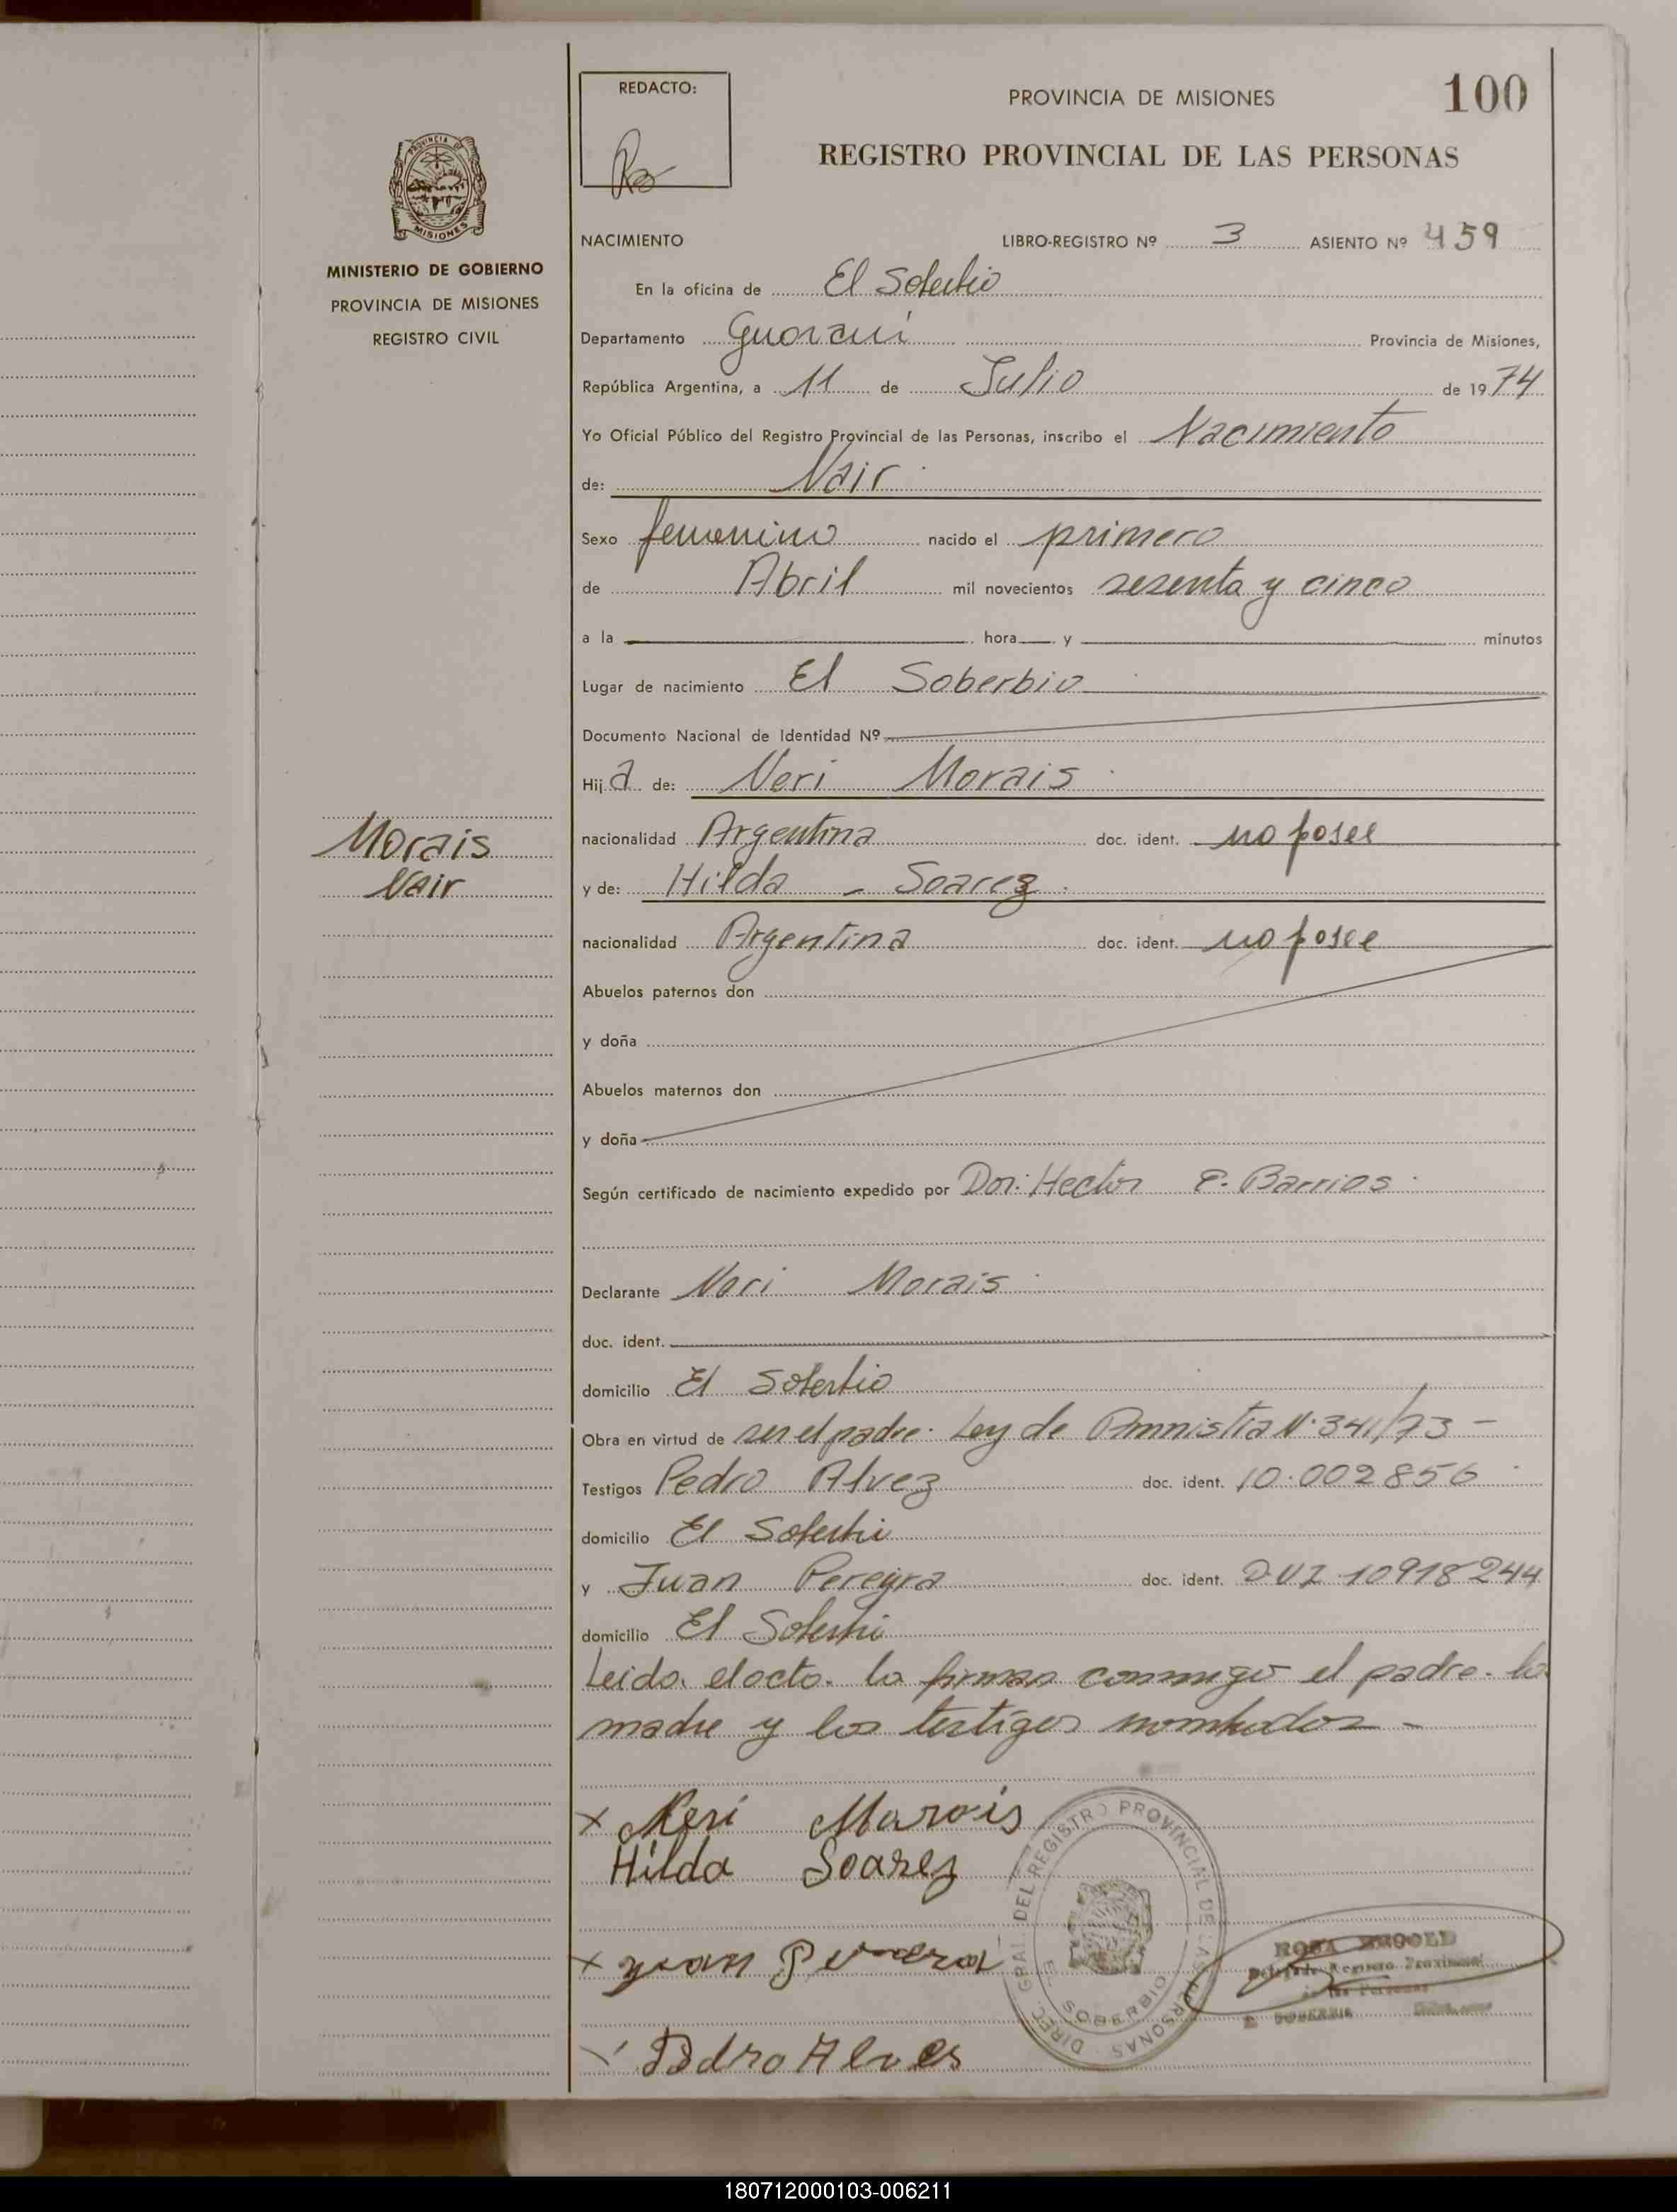 REDACTO:
PROVINCIA DE MISIONES
100
REGISTRO PROVINCIAL DE LAS PERSONAS
PROVINCIA DE
MISIONES
MINISTERIO DE GOBIERNO
PROVINCIA DE MISIONES
REGISTRO CIVIL
NACIMIENTO LIBRO-REGISTRO Nº 3 ASIENTO Nº 459
En la oficina de El Soberbio
Departamento Guaraní Provincia de Misiones,
República Argentina, a 11 de Julio de 1974
Yo Oficial Público del Registro Provincial de las Personas, inscribo el Nacimiento
de: Nair
Sexo femenino nacido el primero
de Abril mil novecientos sesenta y cinco
a la hora y minutos
Lugar de nacimiento El Soberbio
Documento Nacional de Identidad Nº
Hija de: Neri Morais
Morais
Nair
nacionalidad Argentina doc. ident. no posee
y de: Hilda - Soarez
nacionalidad Argentina doc. ident. no posee
Abuelos paternos don
y doña
Abuelos maternos don
y doña
Según certificado de nacimiento expedido por Dor. Hector E. Barrios
Declarante Neri Morais
doc. ident.
domicilio El Soberbio
Obra en virtud de ser el padre. Ley de Amnistia N. 341/73 -
Testigos Pedro Alvez doc. ident. 10.002856
domicilio El Soberbio
y Juan Pereyra doc. ident. DNI 10918244
domicilio El Soberbio
Leido el acto. la firman conmigo el padre. la
madre y los testigos nombrados -
x Neri Morais
Hilda Soarez
x Juan
Pedro Alves
DIREC. GRAL. DEL REGISTRO PROVINCIAL DE LAS PERSONAS
EL SOBERBIO
ROSA
180712000103-006211